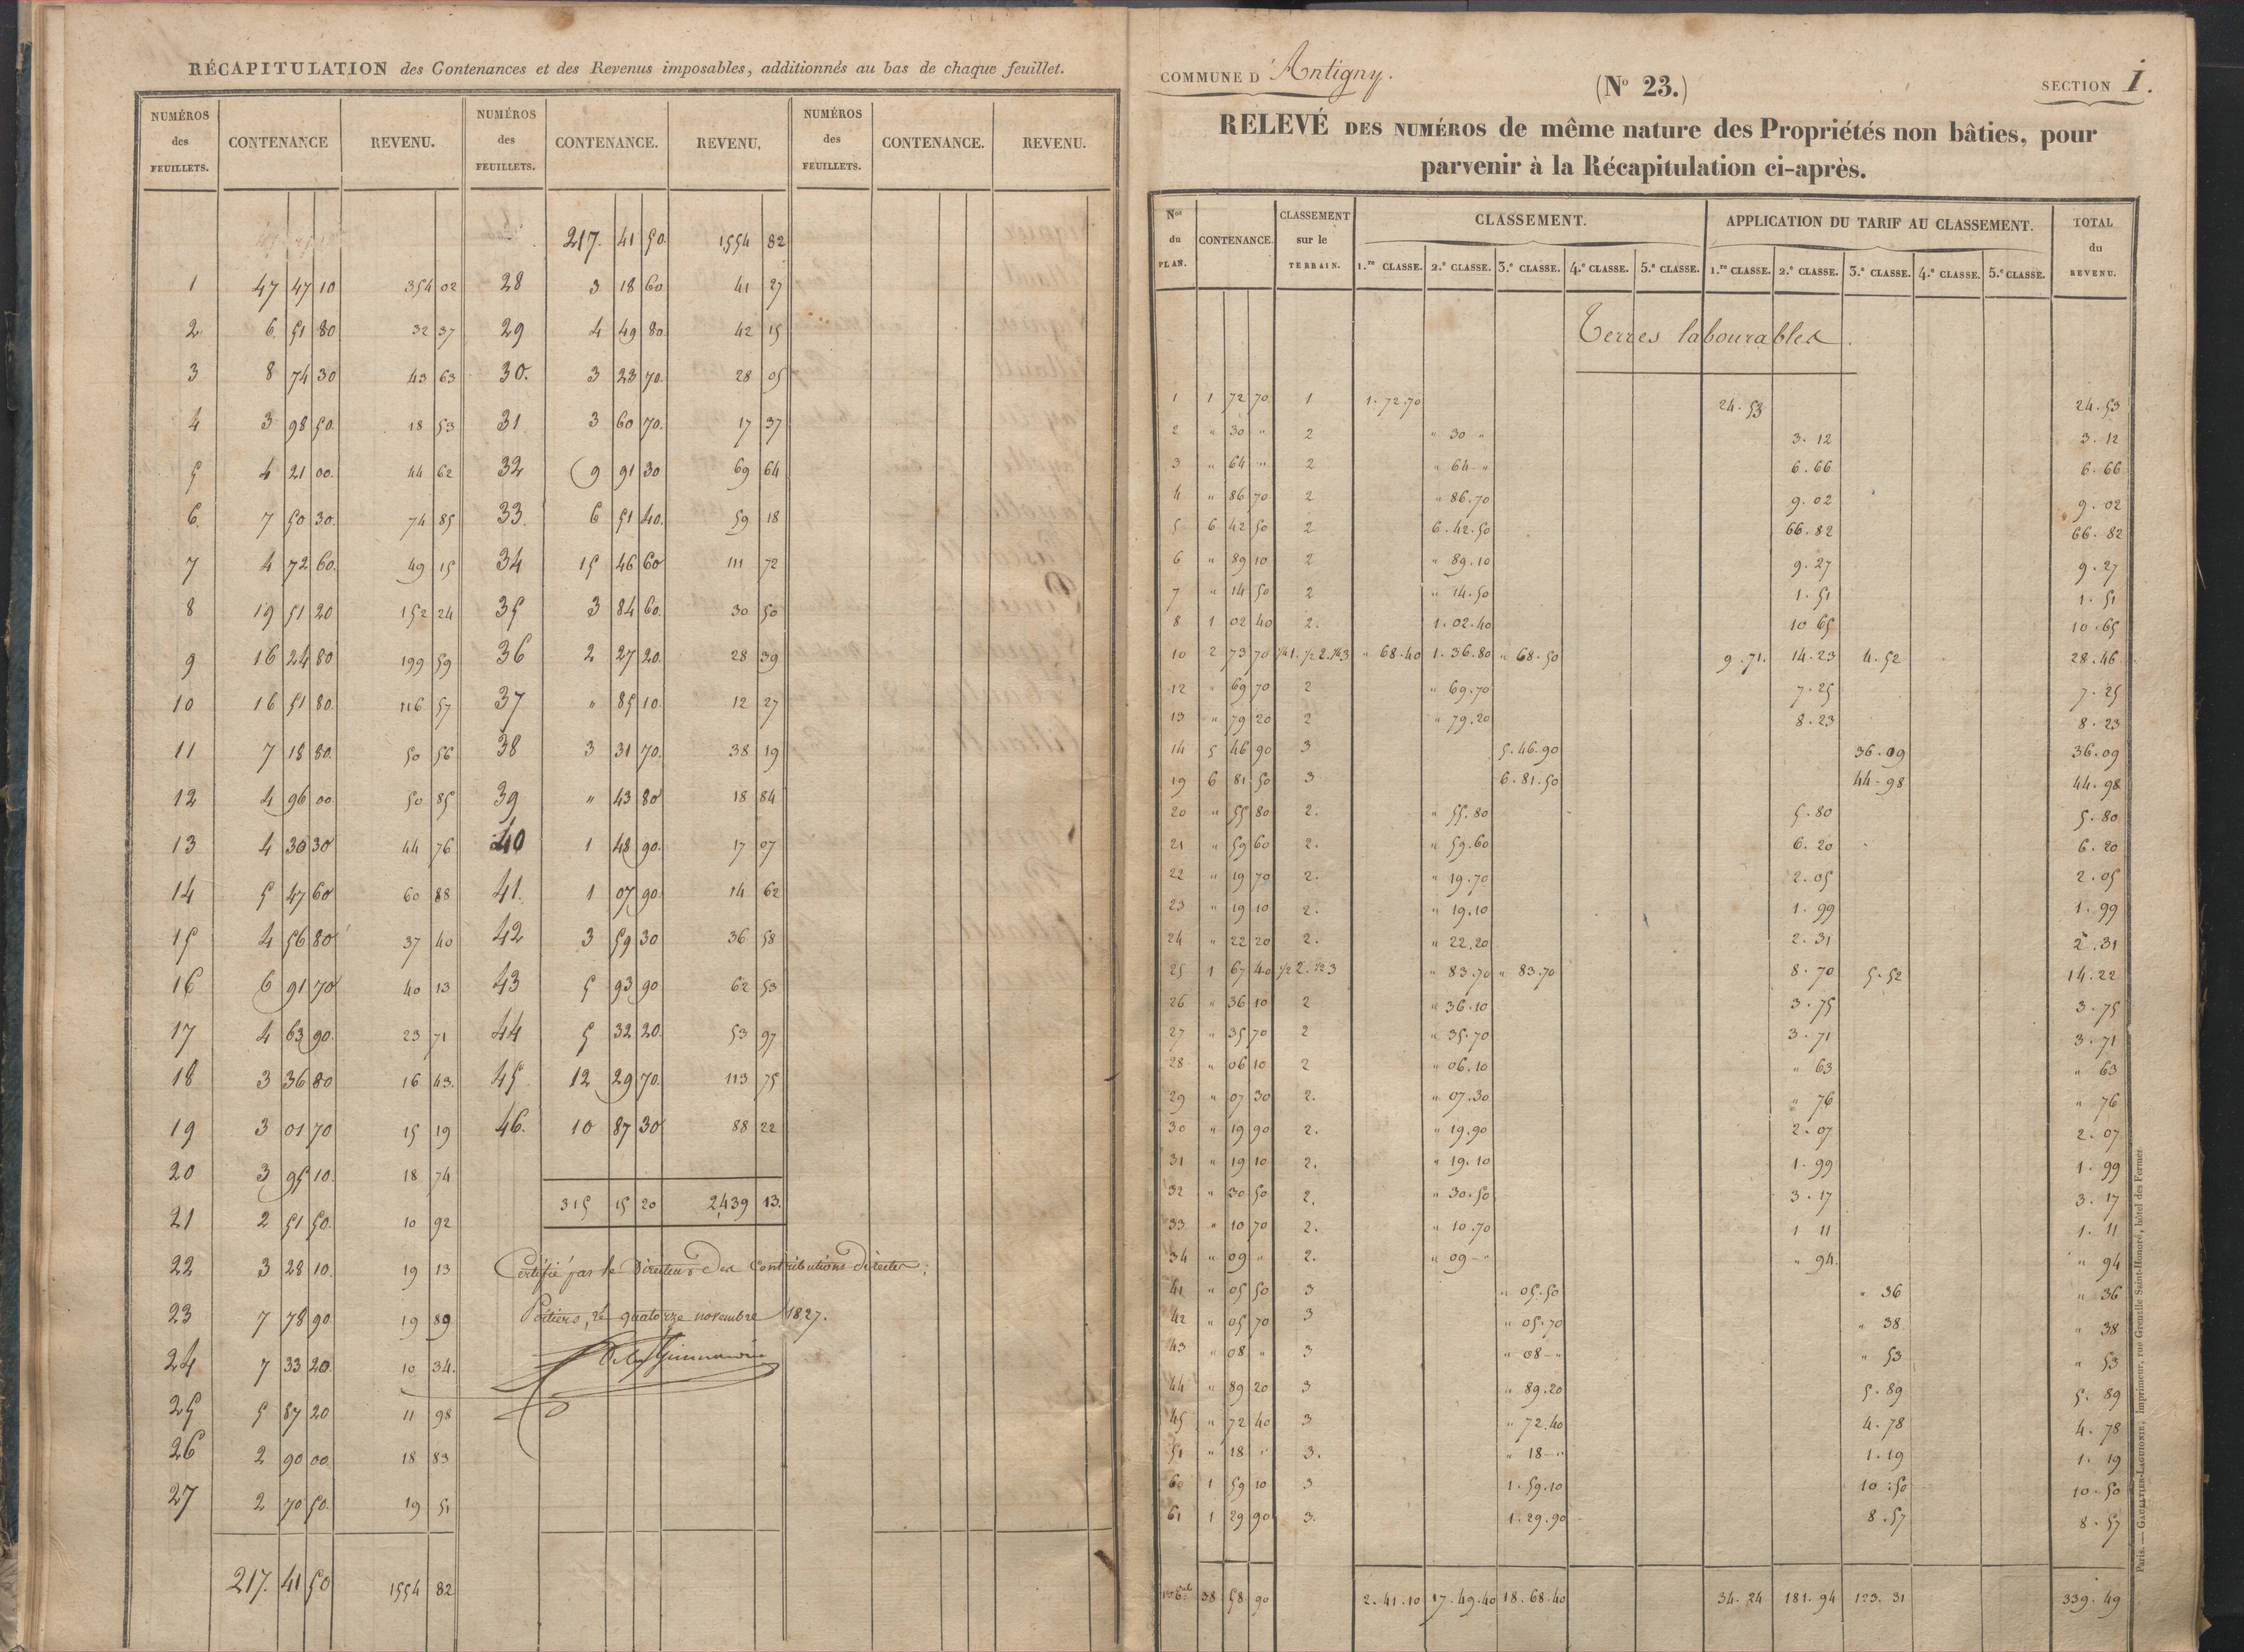 RÉCAPITULATION des Contenances et des Revenus imposables, additionnés au bas de chaque feuillet.
NUMÉROS des FEUILLETS. CONTENANCE REVENU. NUMÉROS des FEUILLETS. CONTENANCE. REVENU. NUMÉROS des FEUILLETS. CONTENANCE. REVENU.
217. 41 50. 1554 82
1 47 47 10 354 02 28 3 18 60 41 27
2 6. 51 80 32 37 29 4 49 80. 42 15
3 8 74 30 43 63 30. 3 23 70. 28 05
4 3 98 50. 18 53 31 3 60 70. 17 37
5 4 21 00. 44 62 32 9 91 30 69 64
6. 7 50 30. 74 85 33. 6 51 40. 59 18
7 4 72 60. 49 15 34 15 46 60 111 72
8 19 51 20 152 24 35 3 84 60. 30 50
9 16 24 80 199 59 36 2 27 20. 28 39
10 16 51 80. 116 57 37 " 85 10. 12 27
11 7 18 80. 50 56 38 3 31 70. 38 19
12 4 96 00. 50 85 39 " 43 80 18 84
13 4 30 30 44 76 40 1 48 90. 17 07
14 5 47 60 60 88 41. 1 07 90. 14 62
15 4 56 80 37 40 42 3 59 30 36 58
16 6 91 70 40 13 43 5 93 90 62 53
17 4 63 90. 23 71 44 5 32 20. 53 97
18 3 36 80 16 43. 45 12 29 70. 113 75
19 3 01 70 15 19 46. 10 87 30 88 22
20 3 95 10. 18 74
315 15 20 2439 13.
21 2 51 50. 10 92
22 3 28 10. 19 13 Certifié par le Directeur des Contributions directes;
23 7 78 90 19 89 Poitiers, le quatorze novembre 1827.
24 7 33 20. 10 34.
25 5 87 20 11 98
26 2 90 00. 18 83
27 2 70 50. 19 51
217. 41 50 1554 82
COMMUNE D' Antigny. (No 23.) SECTION I.
RELEVÉ DES NUMÉROS de même nature des Propriétés non bâties, pour
parvenir à la Récapitulation ci-après.
Nos du PLAN. CONTENANCE. CLASSEMENT sur le TERRAIN. CLASSEMENT. APPLICATION DU TARIF AU CLASSEMENT. TOTAL du REVENU.
1.re CLASSE. 2.e CLASSE. 3.e CLASSE. 4.e CLASSE. 5.e CLASSE. 1.re CLASSE. 2.e CLASSE. 3.e CLASSE. 4.e CLASSE. 5.e CLASSE.
Terres labourables.
1 1 72 70 1 1. 72. 70 24. 53 24. 53
2 " 30 " 2 " 30 " 3. 12 3. 12
3 " 64 " 2 " 64 - " 6. 66 6. 66
4 " 86 70 2 " 86. 70 9. 02 9. 02
5 6 42 50 2 6. 42. 50 66. 82 66. 82
6 " 89 10 2 " 89. 10 9. 27 9. 27
7 " 14 50 2 " 14. 50 1. 51 1. 51
8 1 02 40 2. 1. 02. 40 10 65 10. 65
10 2 73 70 1/4 1. 1/2 2. 1/4 3 " 68. 40 1. 36. 80 " 68. 50 9. 71. 14. 23 4. 52 28. 46
12 " 69 70 2 " 69. 70 7. 25 7. 25
13 " 79 20 2 " 79. 20 8. 23 8. 23
14 5 46 90 3 5. 46. 90 36. 09 36. 09
19 6 81 50 3 6. 81. 50 44 - 98 44. 98
20 " 55 80 2. " 55. 80 5. 80 5. 80
21 " 59 60 2. " 59. 60 6. 20 6. 20
22 " 19 70 2. " 19. 70 2. 05 2. 05
23 " 19 10 2. " 19. 10 1. 99 1. 99
24 " 22 20 2. " 22. 20 2. 31 2. 31
25 1 67 40 1/2 2. 1/2 3 " 83. 70 " 83. 70 8. 70 5. 52 14. 22
26 " 36 10 2 " 36. 10 3. 75 3. 75
27 " 35 70 2 " 35. 70 3. 71 3. 71
28 " 06 10 2 " 06. 10 " 63 " 63
29 " 07 30 2. " 07. 30 " 76 " 76
30 " 19 90 2. " 19. 90 2. 07 2. 07
31 " 19 10 2. " 19. 10 1. 99 1. 99
32 " 30 50 2. " 30. 50 3. 17 3. 17
33 " 10 70 2. " 10. 70 1 11 1. 11
34 " 09 " 2. " 09 - " " 94. " 94
41 " 05 50 3 " 05. 50 " 36 " 36
42 " 05 70 3 " 05. 70 " 38 " 38
43 " 08 " 3 " 08 - " " 53 " 53
44 " 89 20 3 " 89. 20 5. 89 5. 89
45 " 72 40 3 " 72. 40 4. 78 4. 78
51 " 18 " 3. " 18 - " 1. 19 1. 19
60 1 59 10 3 1. 59. 10 10. 50 10. 50
61 1 29 90 3. 1. 29. 90 8. 57 8. 57
38 58 90 2. 41. 10 17. 49. 40 18. 68. 40 34. 24 181. 94 123. 31 339. 49
Paris. — GAULTIER-LAGUIONIE, Imprimeur, rue Grenelle Saint-Honoré, hôtel des Fermes.